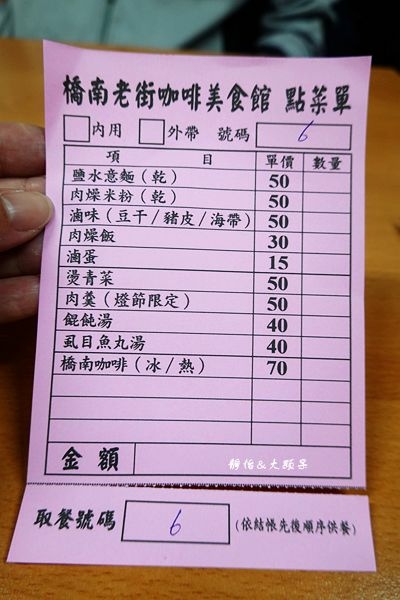 橋南老街咖啡美食館 點菜單
內用 外帶 號碼 6
項 目 單價 數量
鹽水意麵(乾) 50
肉燥米粉(乾) 50
滷味(豆干/豬皮/海帶) 50
肉燥飯 30
滷蛋 15
燙青菜 50
肉羹(燈節限定) 50
餛飩湯 40
虱目魚丸湯 40
橋南咖啡(冰/熱) 70
金額
靜怡&大顆呆
取餐號碼 6 (依結帳先後順序供餐)